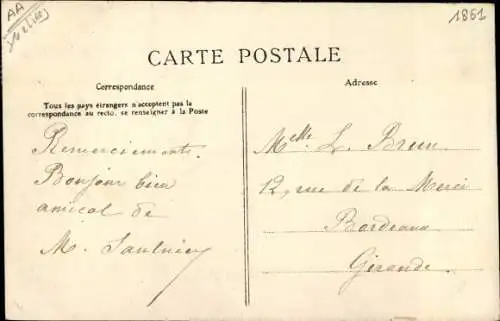 AA
1861
CARTE POSTALE
Correspondance
Tous les pays étrangers n'acceptent pas la
correspondance au recto, se renseigner à la Poste
Remerciements.
Bonjour bien
amical de
M. Saulnier
Adresse
Melle L. Brun
12, rue de la Merci
Bordeaux
Gironde.